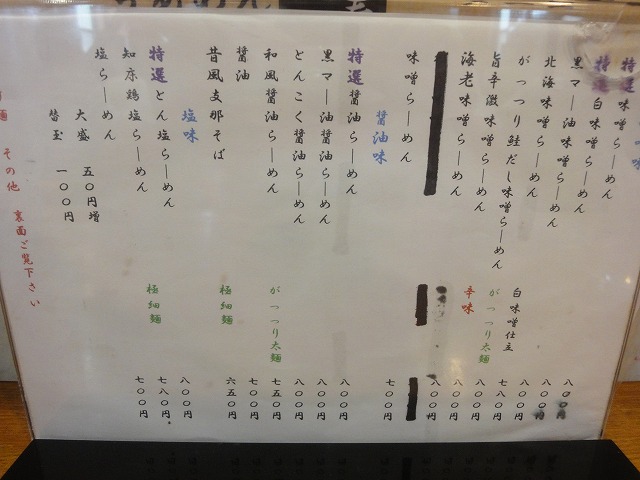 特選 味噌らーめん 八〇〇円
特選 白味噌らーめん 八〇〇円
黒マー油味噌らーめん 八〇〇円
北海味噌らーめん 白味噌仕立 七八〇円
がっつり鮭だし味噌らーめん がっつり太麺 八〇〇円
旨辛激味噌らーめん 辛味 八〇〇円
海老味噌らーめん 八〇〇円
味噌らーめん 七〇〇円
醤油味
特選 醤油らーめん 八〇〇円
黒マー油醤油らーめん 八〇〇円
とんこく醤油らーめん 八〇〇円
和風醤油らーめん がっつり太麺 七五〇円
醤油 七〇〇円
昔風支那そば 極細麺 六五〇円
塩味
特選 とん塩らーめん 八〇〇円
知床鶏塩らーめん 極細麺 七八〇円
塩らーめん 七〇〇円
大盛 五〇円増
替玉 一〇〇円
麺 その他 裏面ご覧下さい